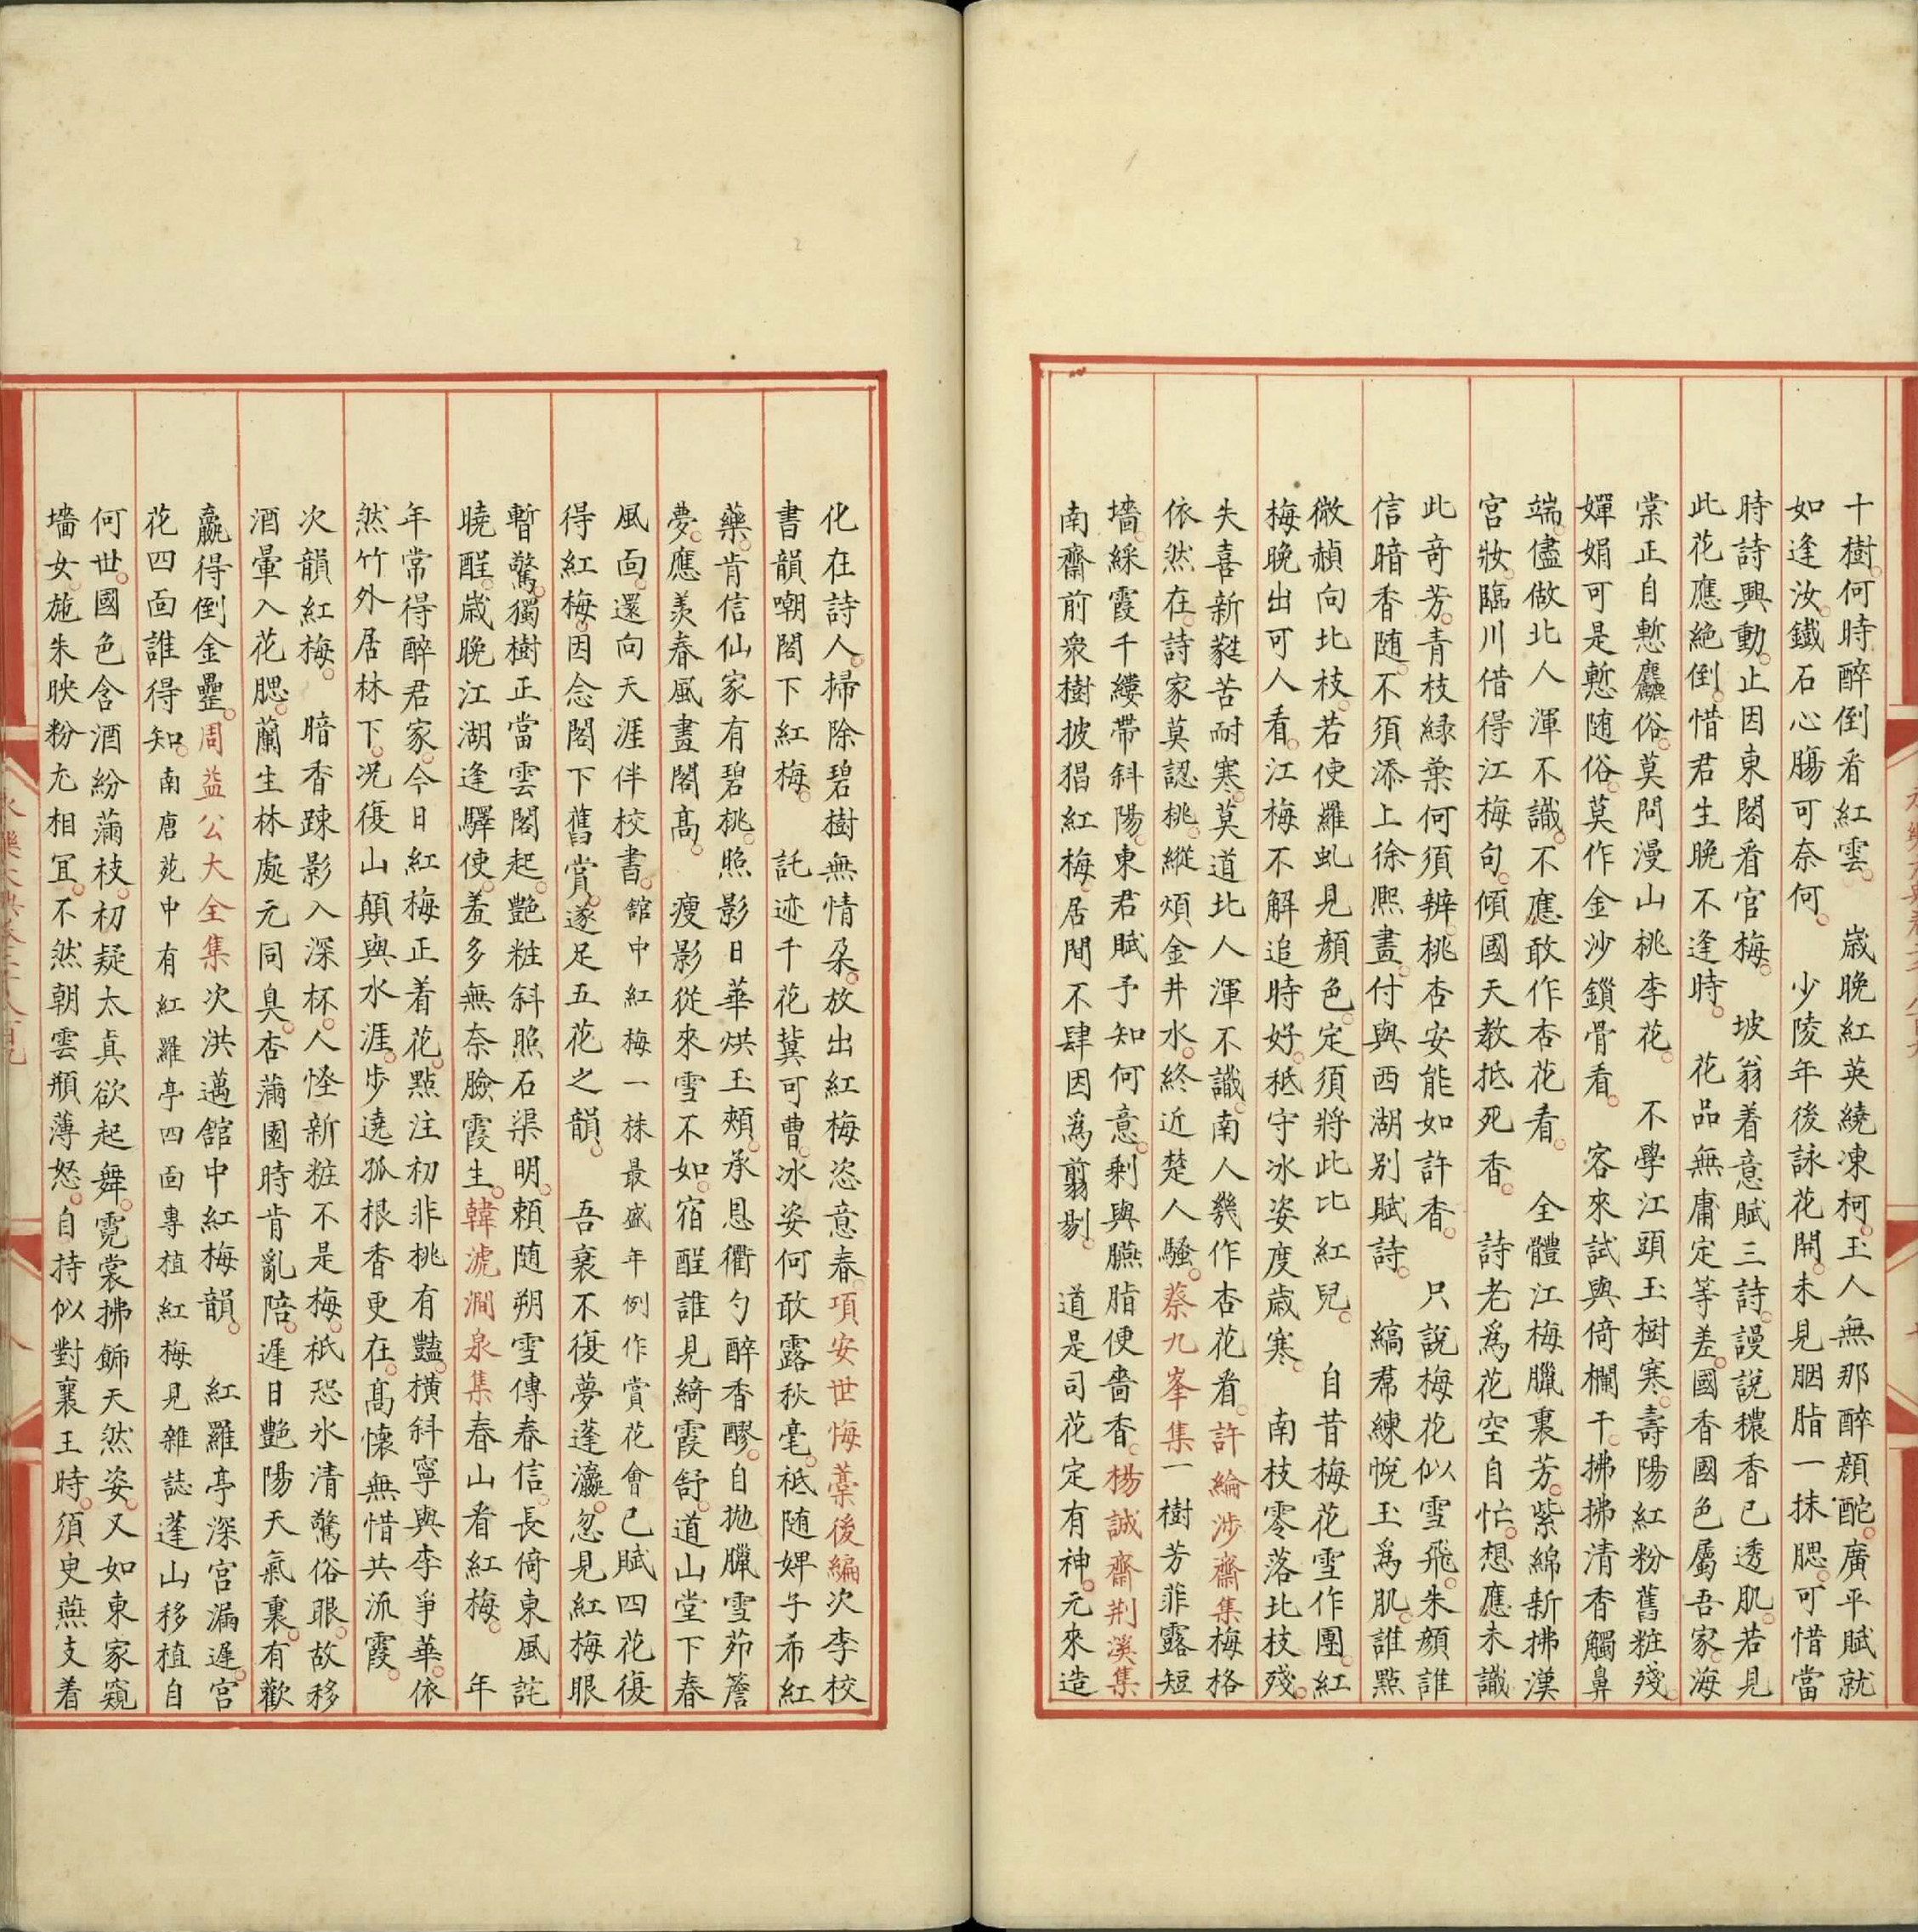 十樹何時醉倒看紅雲　歲晚紅英繞凍柯玉人無那醉顏酡廣平賦就
如逢汝鐵石心膓可奈何　少陵年後詠花開未見胭脂一抹腮可惜當
時詩興動止因東閣看官梅　坡翁着意賦三詩謾說穠香已透肌若見
此花應絕倒惜君生晚不逢時　花品無庸定等差國香國色屬吾家海
棠正自慙麤俗莫問漫山桃李花　不學江頭玉樹寒壽陽紅粉舊粧殘
嬋娟可是慙随俗莫作金沙鎻骨看　客來試與倚欄干拂拂清香觸鼻
端儘做北人渾不識不應敢作杏花看　全體江梅臘裏芳紫綿新拂漢
宮妝臨川借得江梅句傾國天教抵死香　詩老爲花空自忙想應未識
此竒芳青枝緑葉何須辨桃杏安能如許香　只說梅花似雪飛朱顔誰
信暗香随不須添上徐熈畫付與西湖别賦詩　縞帬練帨玉爲肌誰點
微赬向北枝若使羅虬見顔色定須將此比紅兒　自昔梅花雪作團紅
梅晚出可人看江梅不解追時好秪守冰姿度歲寒　南枝零落北枝殘
失喜新蕤苦耐寒莫道北人渾不識南人幾作杏花看許綸涉齋集梅格
依然在詩家莫認桃縱煩金井水終近楚人騷蔡九峯集一樹芳菲露短
墻綵霞千縷帶斜陽東君賦予知何意剩與臙脂便嗇香楊誠齋荆溪集
南齋前衆樹披猖紅梅居間不肆因爲翦剔　道是司花定有神元來造
化在詩人掃除碧樹無情朵放出紅梅恣意春項安世悔藁後編次李校
書韻嘲閣下紅梅　託迹千花冀可曹冰姿何敢露秋毫秪随婢子希紅
藥肯信仙家有碧桃照影日華烘玉頰承恩衢勺醉香醪自拋臘雪茆簷
夢應羨春風畫閣髙　瘦影從來雪不如宿酲誰見綺霞舒道山堂下春
風面還向天涯伴校書舘中紅梅一株最盛年例作賞花會已賦四花復
得紅梅因念閣下舊賞遂足五花之韻　吾衰不復夢蓬瀛忽見紅梅眼
暫驚獨樹正當雲閣起艶粧斜照石渠明頼随朔雪傳春信長倚東風詫
曉酲歲晚江湖逢驛使羞多無奈臉霞生韓淲澗泉集春山看紅梅　年
年常得醉君家今日紅梅正着花點注初非桃有豔橫斜寧與李爭華依
然竹外居林下况復山顛與水涯步遶孤根香更在髙懐無惜共流霞
次韻紅梅　暗香踈影入深杯人怪新粧不是梅秪恐氷清驚俗眼故移
酒暈入花腮蘭生林處元同臭杏滿園時肯亂陪遲日艷陽天氣裏有歡
贏得倒金罍周益公大全集次洪邁舘中紅梅韻　紅羅亭深宮漏遲宮
花四面誰得知南唐苑中有紅羅亭四面專植紅梅見雜誌蓬山移植自
何世國色含酒紛滿枝初疑太真欲起舞霓裳拂飾天然姿又如東家窺
墻女施朱映粉尤相冝不然朝雲頩薄怒自持似對襄王時須臾燕支着